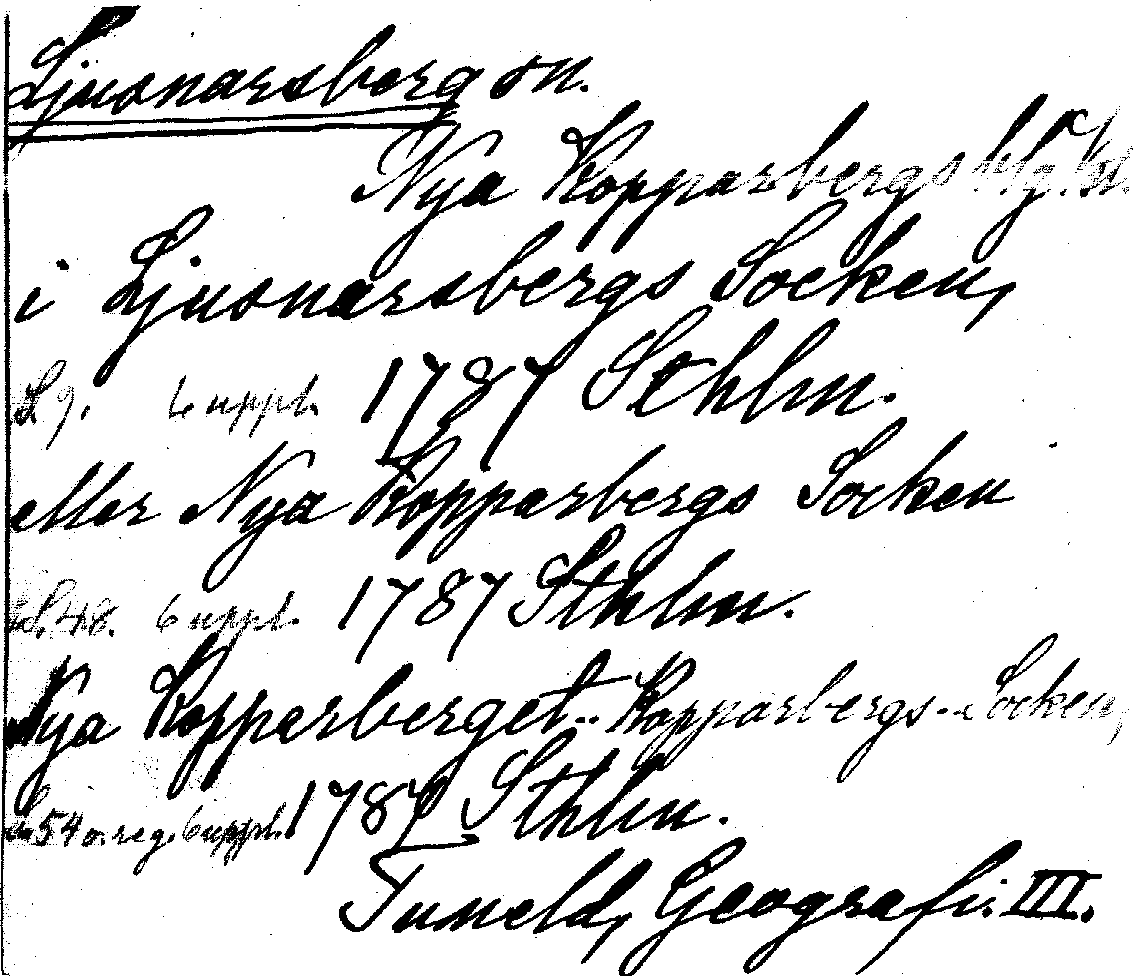 Ljusnarsberg sn.
Nya Kopparbergs
i Ljusnarsbergs Socken,
S 9. 6 uppl. 1787 Sthlm.
eller Nya Kopparbergs Socken
S. 48. 6 uppl. 1787 Sthlm.
Nya Kopparberget.. Kopparbergs Socken,
54 o. reg. 6 uppl. 1787 Sthlm.
Tuneld, Geografi. III.